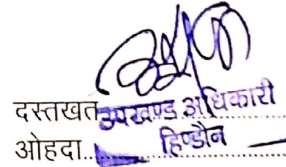 दस्तखत उपखण्ड अधिकारी
ओहदा..... हिण्डौन .....